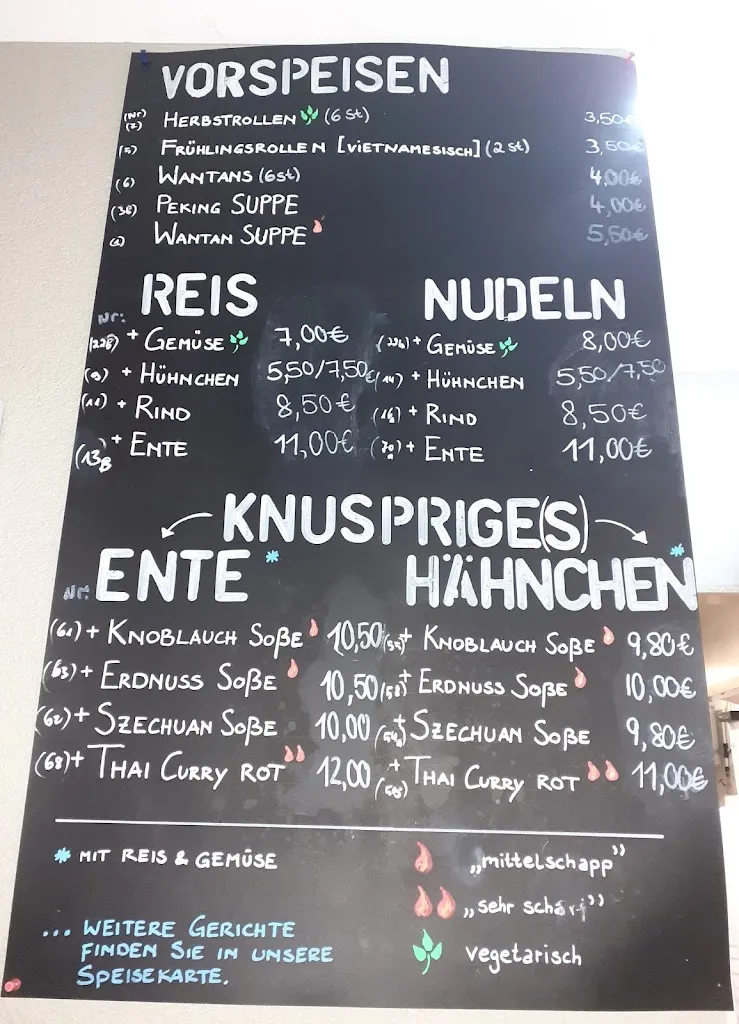 VORSPEISEN
(Nr) (7) HERBSTROLLEN (6 St) 3,50€
(5) FRÜHLINGSROLLEN [VIETNAMESISCH] (2 St) 3,50€
(6) WANTANS (6st) 4,00€
PEKING SUPPE 4,00€
WANTAN SUPPE 5,50€
REIS
Nr:
+ GEMÜSE 7,00€
(9) + HÜHNCHEN 5,50/7,50€
+ RIND 8,50€
(13B) + ENTE 11,00€
NUDELN
+ GEMÜSE 8,00€
(14) + HÜHNCHEN 5,50/7,50
(16) + RIND 8,50€
+ ENTE 11,00€
KNUSPRIGE(S)
ENTE *
Nr:
(61) + KNOBLAUCH SOßE 10,50
(63) + ERDNUSS SOßE 10,50
(62) + SZECHUAN SOßE 10,00
(68) + THAI CURRY ROT 12,00
HÄHNCHEN *
(55) + KNOBLAUCH SOßE 9,80€
(58) + ERDNUSS SOßE 10,00€
+ SZECHUAN SOßE 9,80€
+ THAI CURRY ROT 11,00€
* MIT REIS & GEMÜSE
„mittelschapp"
„sehr scharf"
vegetarisch
... WEITERE GERICHTE
FINDEN SIE IN UNSERE
SPEISEKARTE.